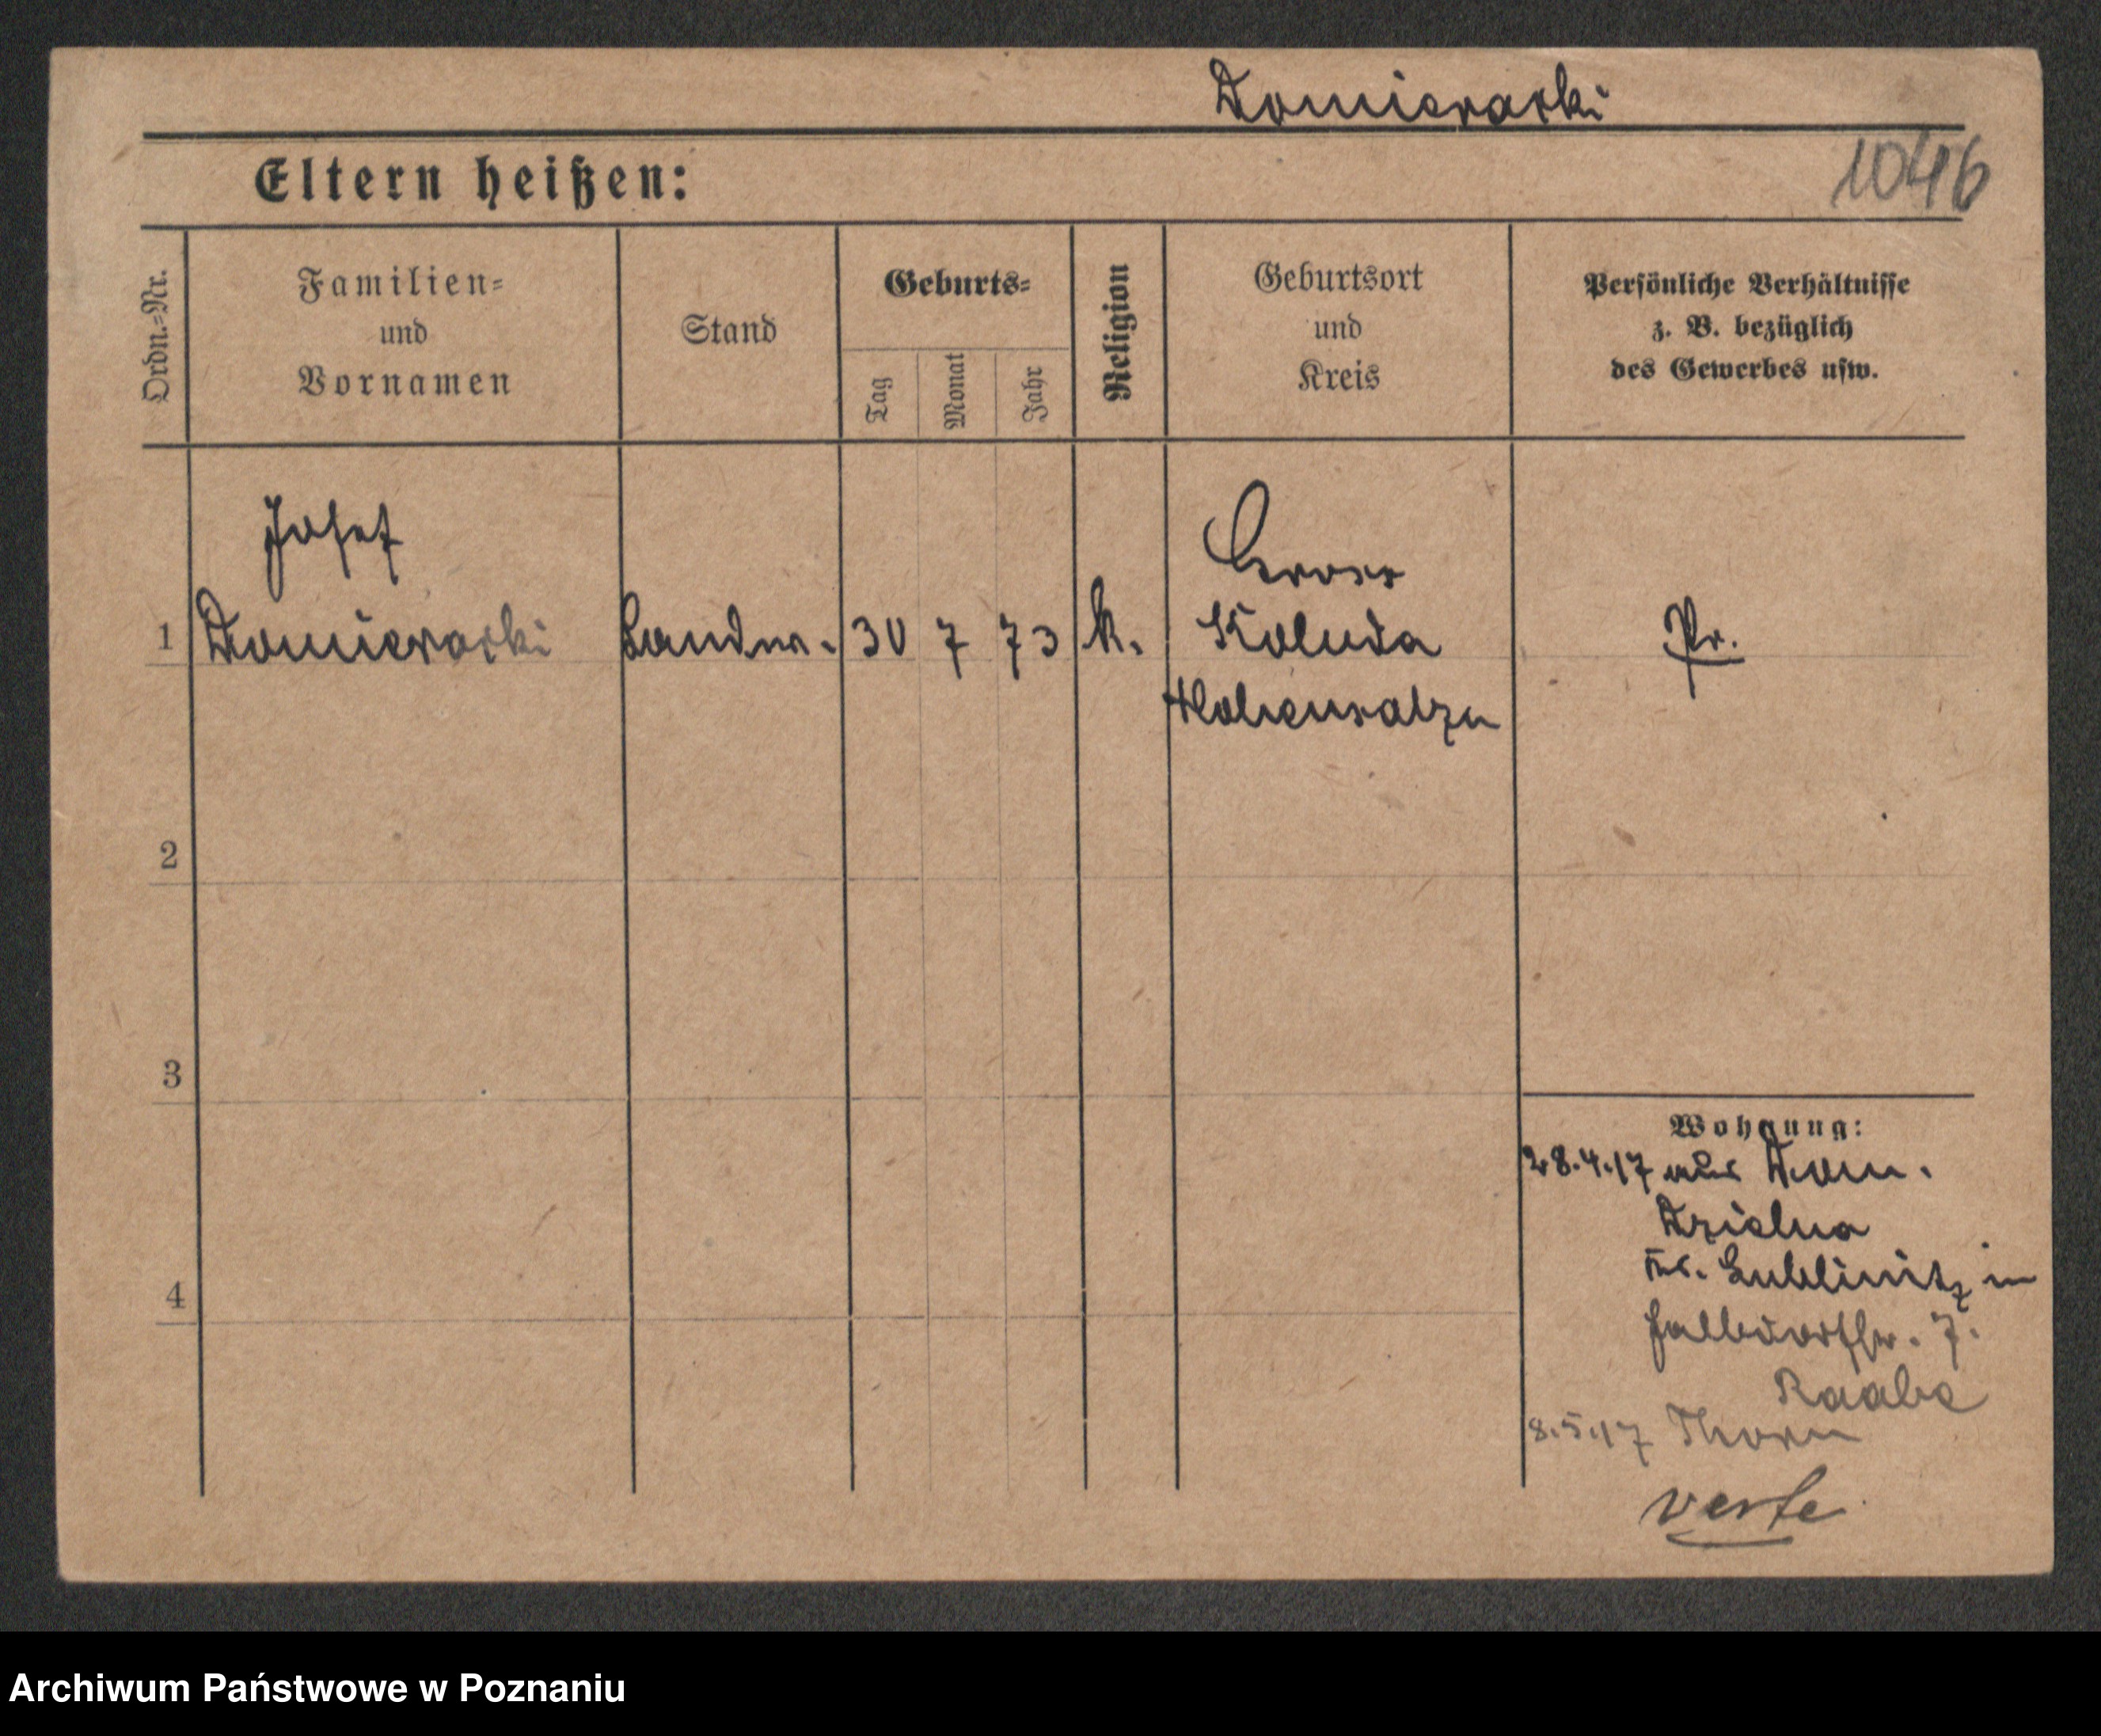 Domieracki
1046
Eltern heißen:
Ordn.-Nr.
Familien-
und
Vornamen
Stand
Geburts-
Tag
Monat
Jahr
Religion
Geburtsort
und
Kreis
Persönliche Verhältnisse
z. B. bezüglich
des Gewerbes usw.
Josef
1 Domieracki Landw. 30 7 73 k.
Gross
Koluda
Hohensalza
Pr.
2
3
4
Wohnung:
28.4.17 aus Dom.
Dzielna
Kr. Lublinitz in
7.
Raabe
8.5.17 Thorn
verte
Archiwum Państwowe w Poznaniu